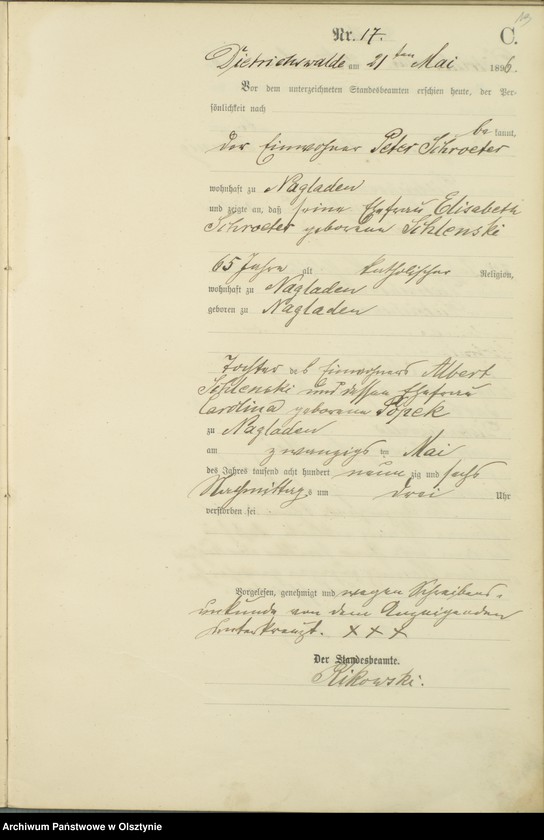 Nr. 17.
C.
Dietrichswalde am 21ten Mai 1896.
Vor dem unterzeichneten Standesbeamten erschien heute, der Per-
sönlichkeit nach
be kannt,
der Einwohner Peter Schroeter
wohnhaft zu Nagladen
und zeigte an, daß seine Ehefrau Elisabeth
Schroeter geborene Schlenski
65 Jahre alt katholischer Religion,
wohnhaft zu Nagladen
geboren zu Nagladen
Tochter des Einwohners Albert
Schlenski und dessen Ehefrau
Carolina geborene Popek
zu Nagladen
am zwanzigsten Mai
des Jahres tausend acht hundert neun zig und sechs
Nachmittags um drei Uhr
verstorben sei
Vorgelesen, genehmigt und wegen Schreibens-
unkunde von dem Anzeigenden
unterkreuzt. X X X
Der Standesbeamte.
Rikowski.
Archiwum Państwowe w Olsztynie